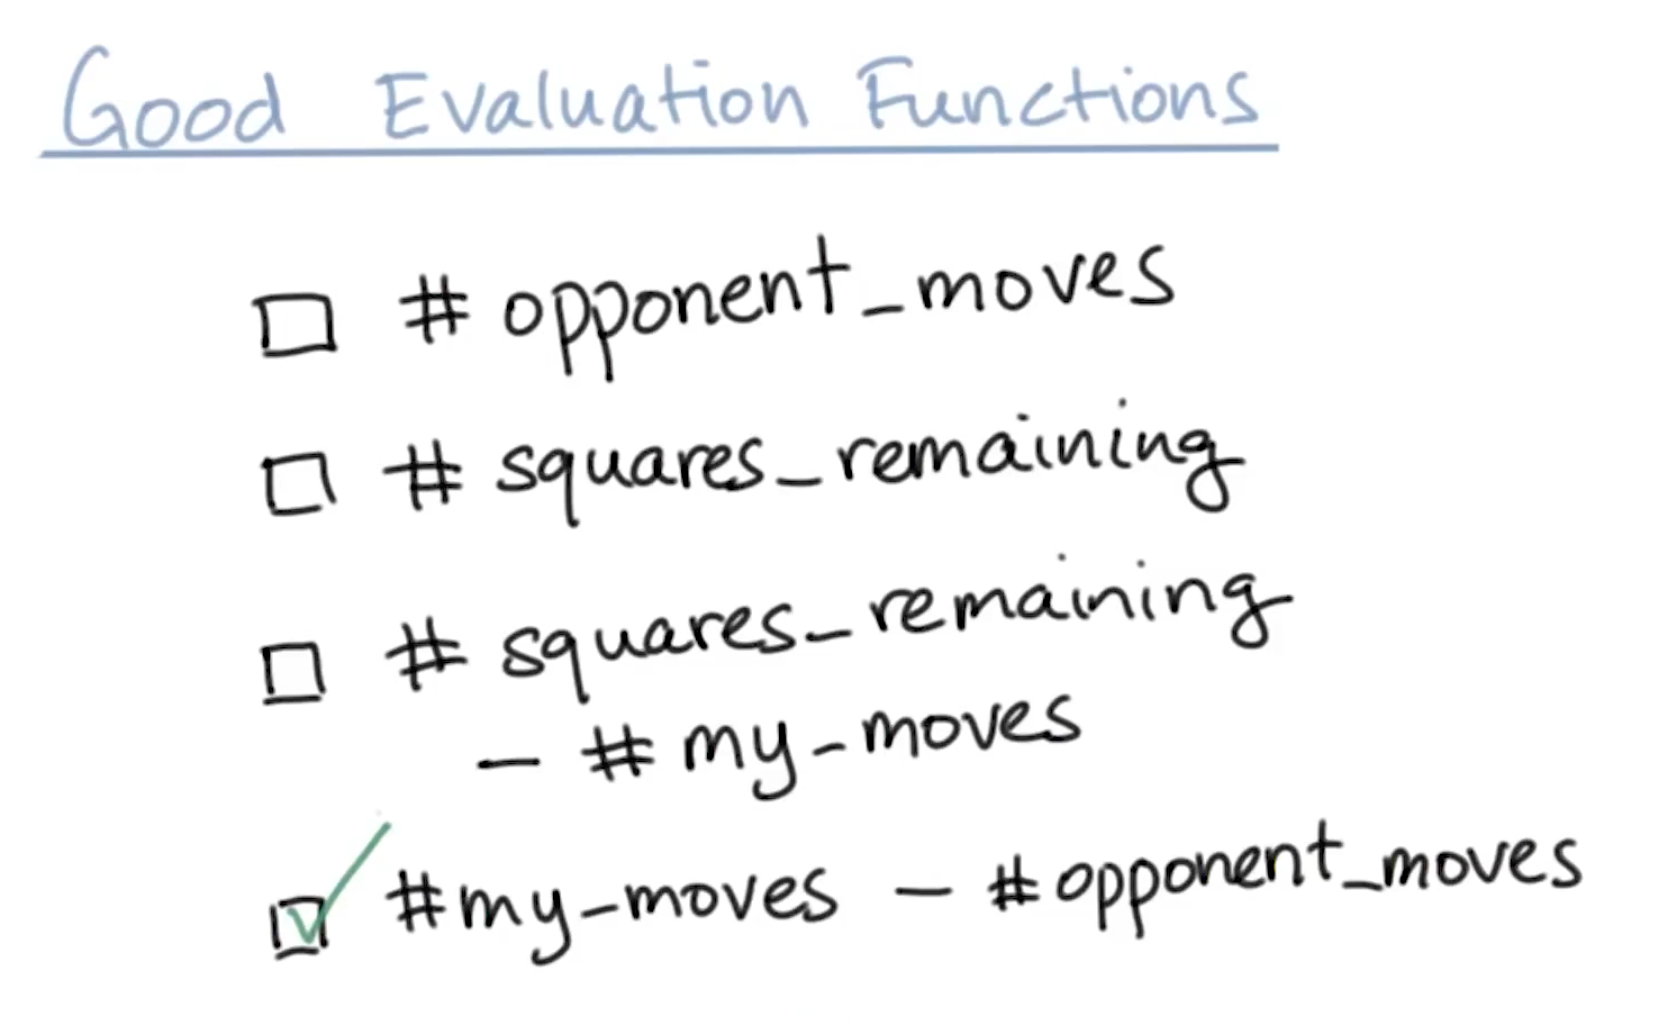 Good Evaluation Functions
# opponent_moves
# squares_remaining
# squares_remaining
- # my_moves
#my_moves - #opponent_moves